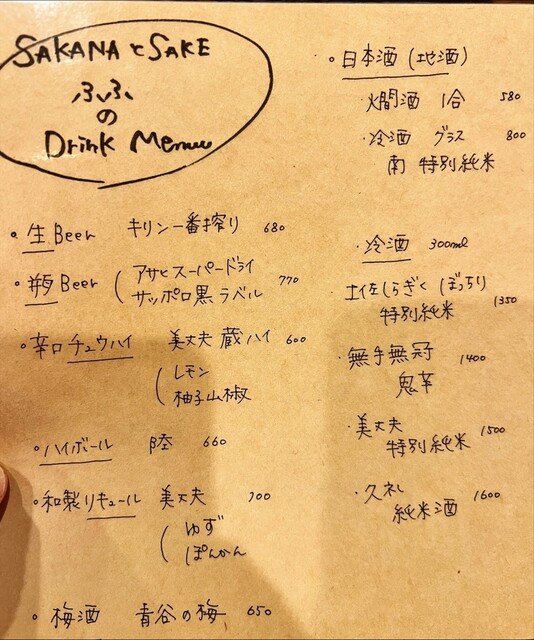 SAKANA と SAKE
ふふ
の
Drink Menu
・生Beer キリン一番搾り 680
・瓶Beer ( アサヒスーパードライ 770
サッポロ黒ラベル
・辛口チュウハイ 美丈夫 蔵ハイ 600
( レモン
柚子山椒
・ハイボール 陸 660
・和製リキュール 美丈夫 700
( ゆず
ぽんかん
・梅酒 青谷の梅 650
・日本酒 (地酒)
・燗酒 1合 580
・冷酒 グラス 800
南 特別純米
・冷酒 300ml
・土佐しらぎく ぼっちり 1350
特別純米
・無手無冠 1400
鬼辛
・美丈夫 1500
特別純米
・久礼 1600
純米酒